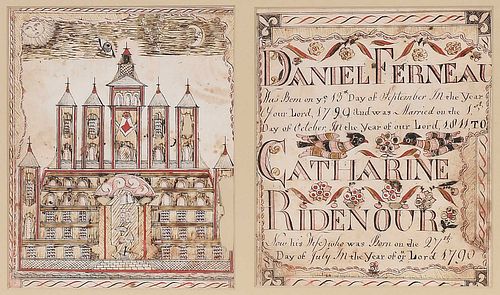 DANIEL FERNEAU
Was Born on yᵉ 13ᵗʰ Day of September In the Year
of our Lord, 1790 and was Married on the 1ˢᵗ
Day of October In the Year of our Lord, 1811, TO
CATHARINE
RIDENOUR
Now his Wife who was Born on the 27ᵗʰ
Day of July In the Year of oʳ Lord 1790